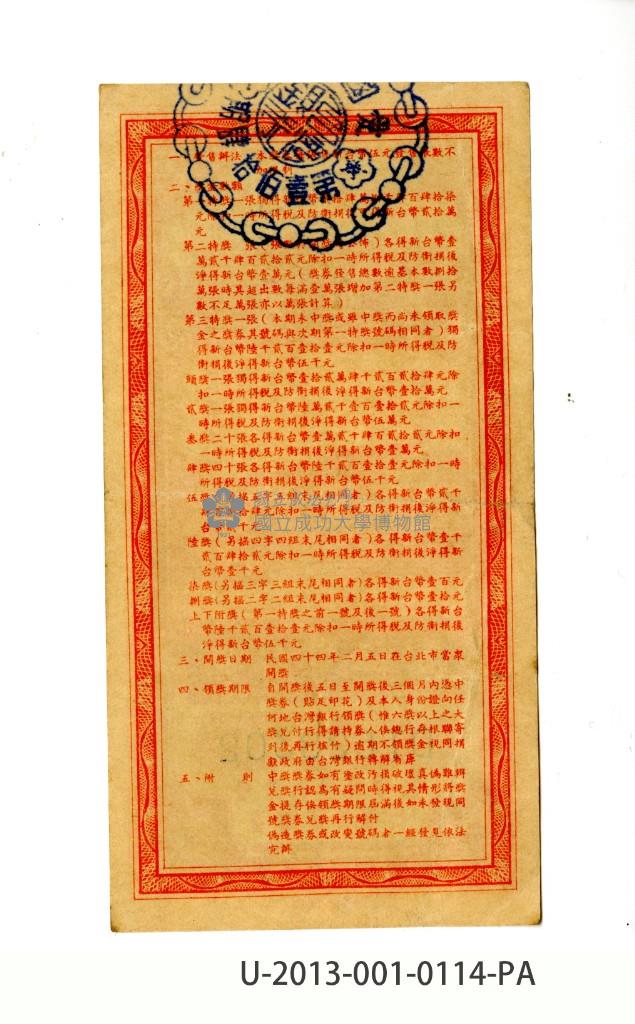 一、發售辦法 本 台幣伍元 張數不
加 制
二、 額
第 一張獨得 肆萬 百肆拾柒
元 時所得稅及防衛捐後 得新台幣貳拾萬
元
第二特獎 張 佈)各得新台幣壹
萬貳千肆百貳拾貳元除扣一時所得稅及防衛捐後
淨得新台幣壹萬元(獎券發售總數逾基本數捌拾
萬張時其超出數每滿壹萬張增加第二特獎一張另
數不足萬張亦以萬張計算)
第三特獎一張(本期未中獎或雖中獎而尚未領取獎
金之獎券其號碼與次期第一特獎號碼相同者)獨
得新台幣陸千貳百壹拾壹元除扣一時所得稅及防
衛捐後淨得新台幣伍千元
頭獎一張獨得新台幣壹拾貳萬肆千貳百拾肆元除
扣一時所得稅及防衛捐後淨得新台幣壹拾萬元
貳獎一張獨得新台幣陸萬貳千壹百壹拾貳元除扣一
時所得稅及防衛捐後淨得新台幣伍萬元
叁獎二十張各得新台幣壹萬貳千肆百貳拾貳元除扣
一時所得稅及防衛捐後淨得新台幣壹萬元
肆獎四十張各得新台幣陸千貳百壹拾壹元除扣一時
所得稅及防衛捐後淨得新台幣伍千元
伍獎 搖五字五組末尾相同者)各得新台幣貳千
肆元除扣一時所得稅及防衛捐後淨得新
台 元
陸獎(另搖四字四組末尾相同者)各得新台幣壹千
貳百肆拾貳元除扣一時所得稅及防衛捐後淨得新
台幣壹千元
柒獎(另搖三字三組末尾相同者)各得新台幣壹百元
捌獎(另搖二字二組末尾相同者)各得新台幣壹拾元
上下附獎(第一特獎之前一號及後一號)各得新台
幣陸千貳百壹拾壹元除扣一時所得稅及防衛捐後
淨得新台幣伍千元
三、開獎日期 民國四十四年二月五日在台北市當眾
開獎
四、領獎期限 自開獎後五日至開獎後三個月內憑中
獎券(貼足印花)及本人身份證向任
何地台灣銀行領獎(惟六獎以上之大
獎兌付行得請持券人俟總行存根聯寄
到後再行核付)逾期不領獎金視同捐
獻政府由台灣銀行轉解省庫
五、附 則 中獎獎券如有塗改污損破壞真偽難辨
兌獎行認為有疑問時得視其情形將獎
金提存俟領獎期限屆滿後如未發現同
號獎券兌獎再行解付
偽造獎券或改變號碼者一經發見依法
究辦
國立成功大學博物館
U-2013-001-0114-PA